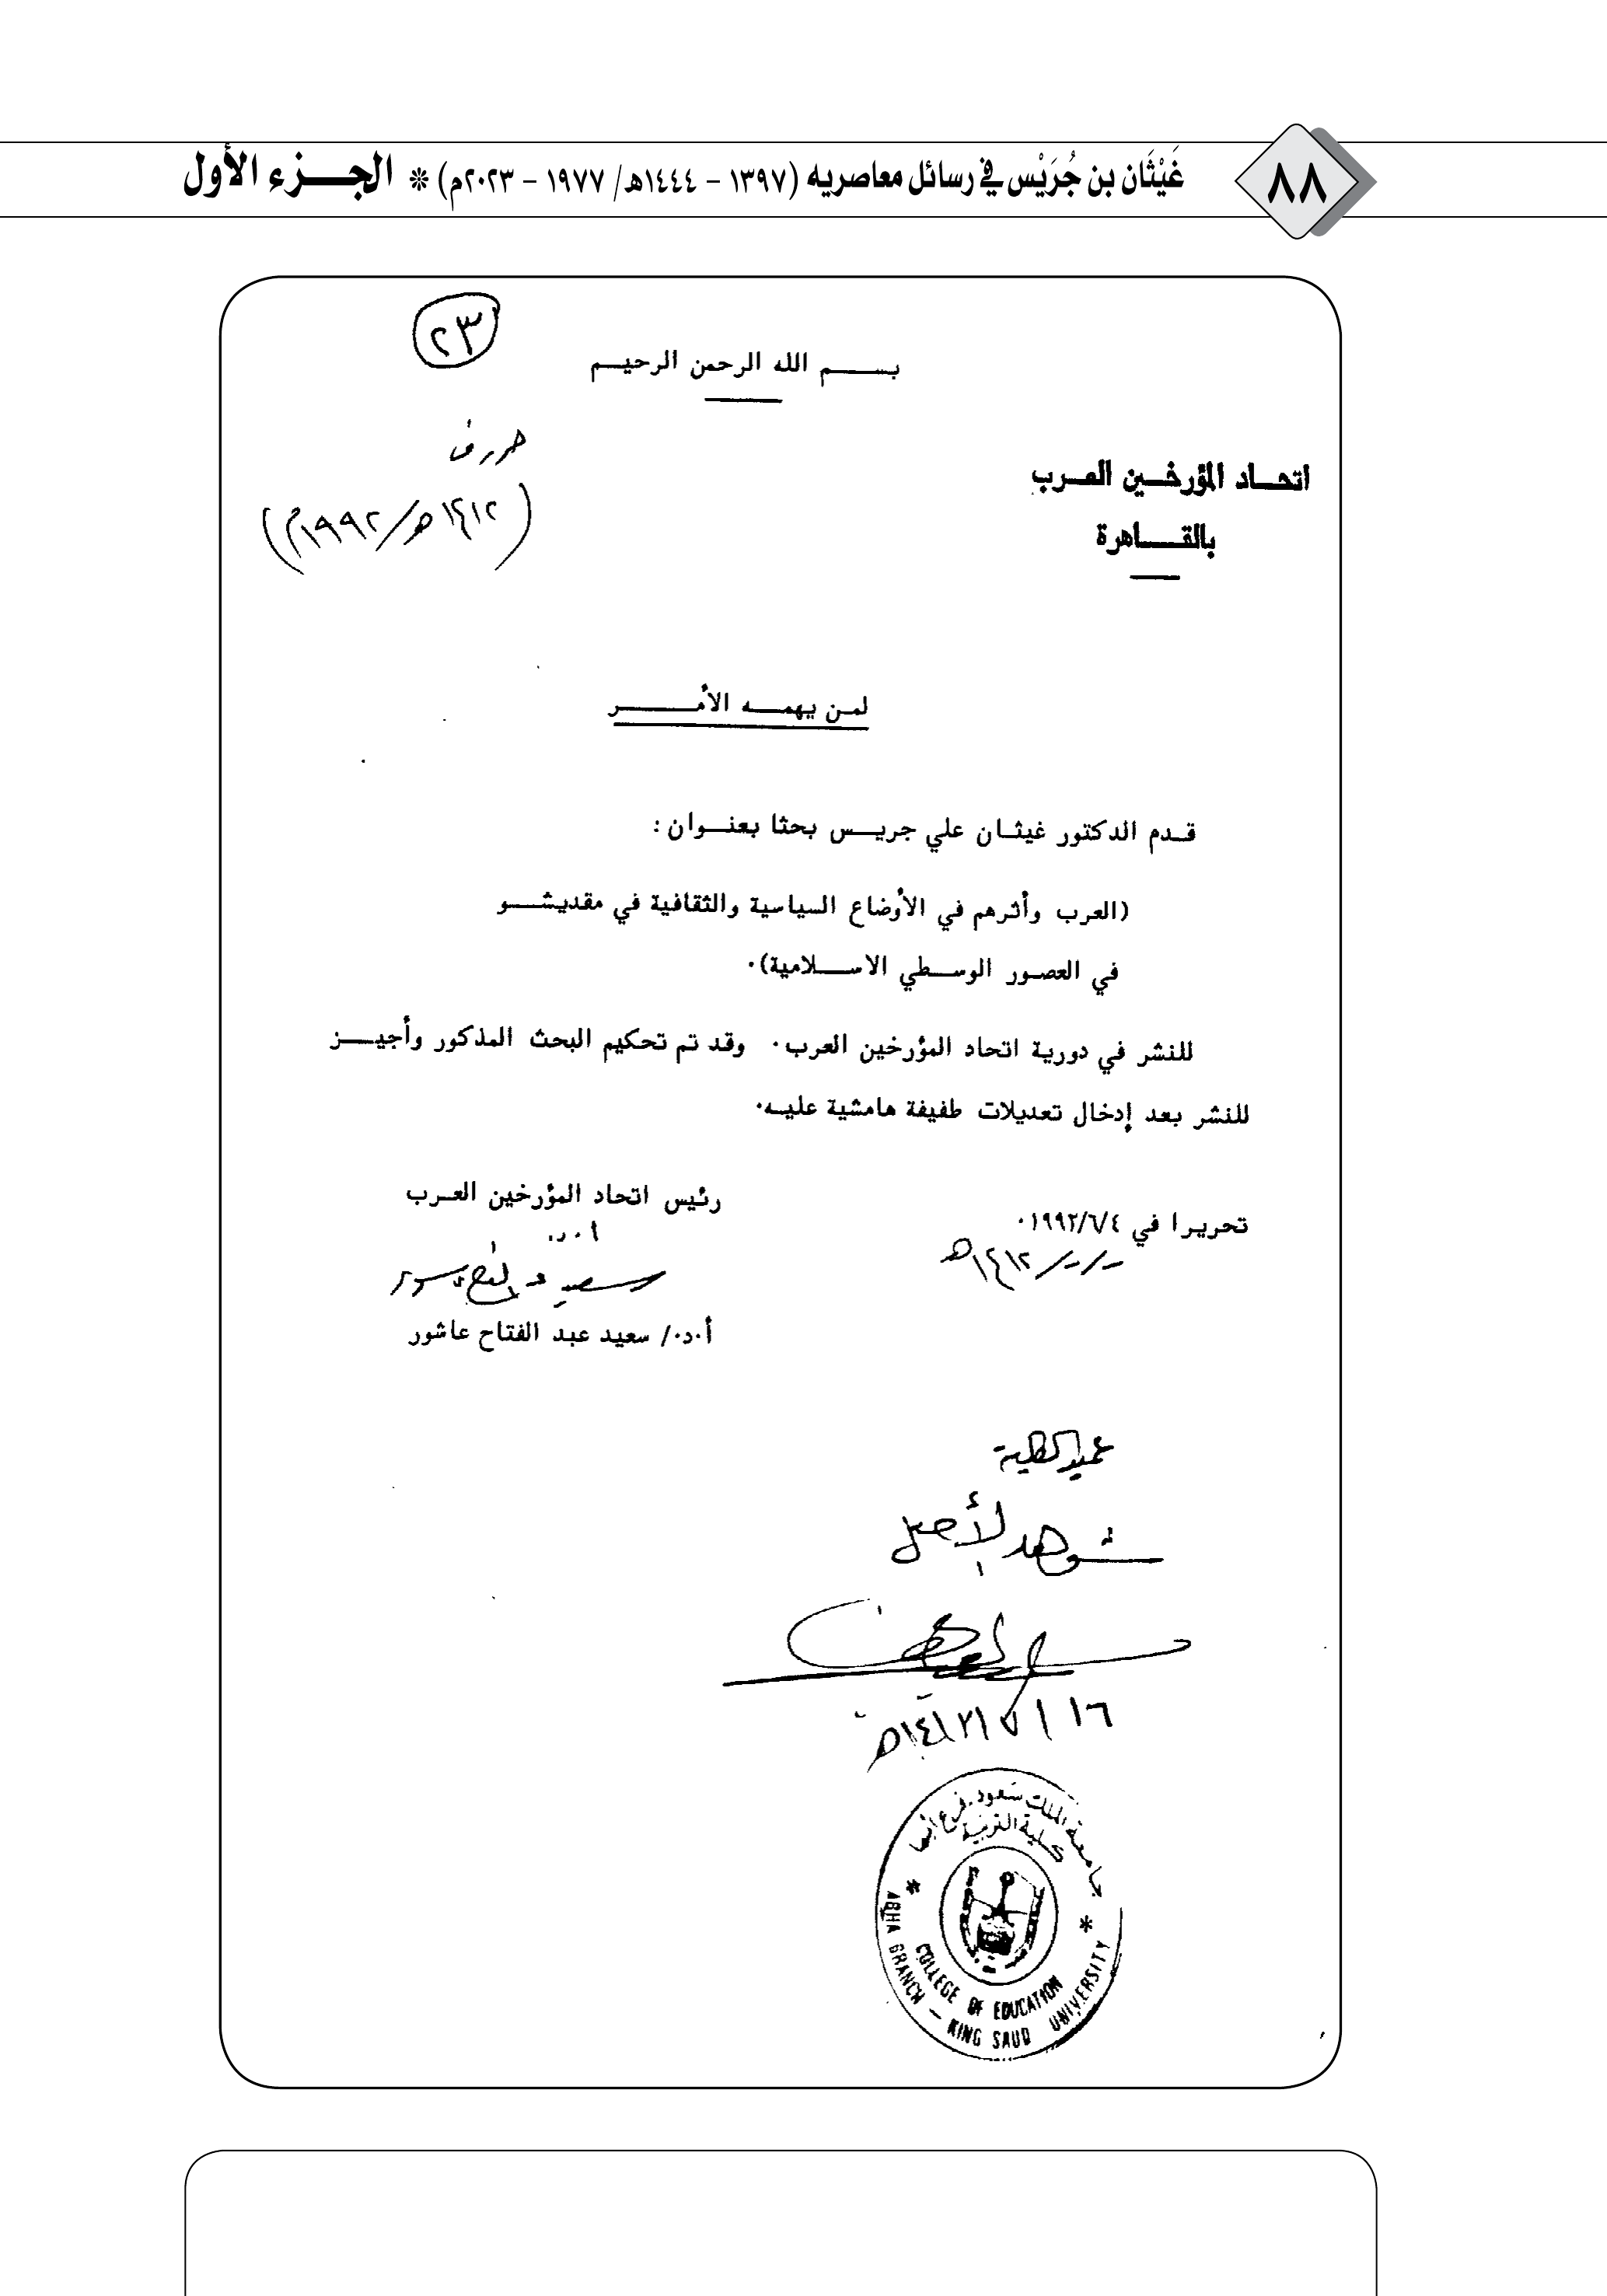 ٨٨
غَيْثَان بن جُرَيْس في رسائل معاصريه (١٣٩٧ - ١٤٤٤هـ/ ١٩٧٧ - ٢٠٢٣م) * الجـــزء الأول
٢٣
بســـم الله الرحمن الرحيـم
حرر في
(١٤١٢هـ/١٩٩٢م)
اتحـاد المؤرخـين العـرب
بالقــاهرة
لمـن يهمــه الأمـــر
قـدم الدكتور غيثـان علي جريـس بحثا بعنـوان :
(العرب وأثرهم في الأوضاع السياسية والثقافية في مقديشــو
في العصـور الوسـطي الاسـلامية)٠
للنشر في دورية اتحاد المؤرخين العرب٠ وقد تم تحكيم البحث المذكور وأجيــز
للنشر بعد إدخال تعديلات طفيفة هامشية عليـه٠
رئيس اتحاد المؤرخين العـرب
تحريـرا في ١٩٩٢/٦/٤٠
١٤١٢هـ
سعيد عبد الفتاح عاشور
أ٠د٠/ سعيد عبد الفتاح عاشور
عميد الكلية
شوهد الأصل
جامعة الملك سعود. فرع أبها
كلية التربية
COLLEGE OF EDUCATION
ABHA BRANCH — KING SAUD UNIVERSITY